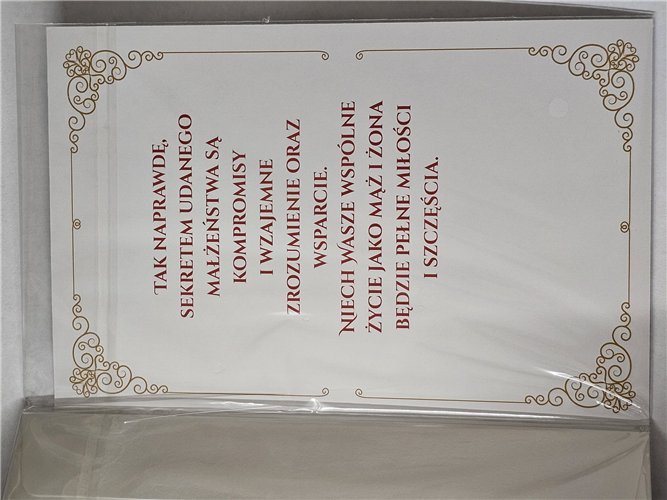 TAK NAPRAWDĘ,
SEKRETEM UDANEGO
MAŁŻEŃSTWA SĄ
KOMPROMISY
I WZAJEMNE
ZROZUMIENIE ORAZ
WSPARCIE.
NIECH WASZE WSPÓLNE
ŻYCIE JAKO MĄŻ I ŻONA
BĘDZIE PEŁNE MIŁOŚCI
I SZCZĘŚCIA.